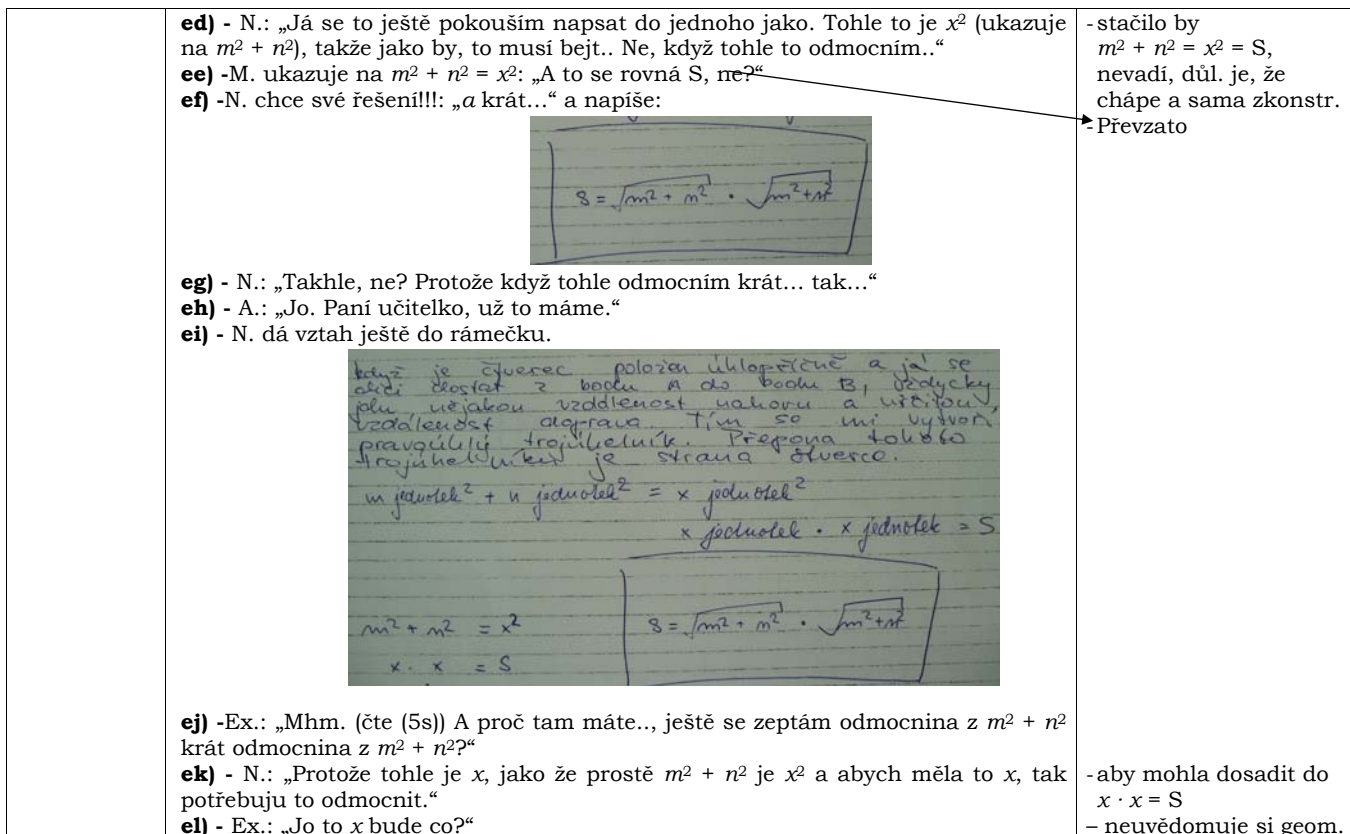 ed) - N.: „Já se to ještě pokouším napsat do jednoho jako. Tohle to je x² (ukazuje
na m² + n²), takže jako by, to musí bejt.. Ne, když tohle to odmocním..“
ee) -M. ukazuje na m² + n² = x²: „A to se rovná S, ne?“
ef) -N. chce své řešení!!!: „a krát…“ a napíše:
S = √m² + n² · √m²+n²
eg) - N.: „Takhle, ne? Protože když tohle odmocním krát… tak…“
eh) - A.: „Jo. Paní učitelko, už to máme.“
ei) - N. dá vztah ještě do rámečku.
když je čtverec položen úhlopříčně a já se
chci dostat z bodu A do bodu B, vždycky
jdu nějakou vzdálenost nahoru a určitou
vzdálenost doprava. Tím se mi vytvoří
pravoúhlý trojúhelník. Přepona tohoto
trojúhelníku je strana čtverce.
m jednotek² + n jednotek² = x jednotek²
x jednotek · x jednotek = S
m² + n² = x²
x · x = S
S = √m² + n² · √m²+n²
ej) -Ex.: „Mhm. (čte (5s)) A proč tam máte.., ještě se zeptám odmocnina z m² + n²
krát odmocnina z m² + n²?“
ek) - N.: „Protože tohle je x, jako že prostě m² + n² je x² a abych měla to x, tak
potřebuju to odmocnit.“
el) - Ex.: „Jo to x bude co?“
-stačilo by
m² + n² = x² = S,
nevadí, důl. je, že
chápe a sama zkonstr.
-Převzato
-aby mohla dosadit do
x · x = S
– neuvědomuje si geom.